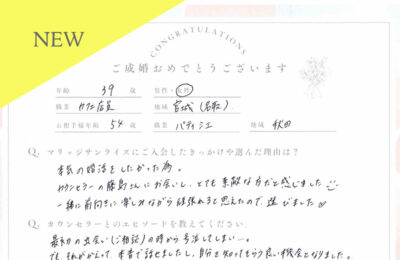 NEW
CONGRATULATIONS
ご成婚おめでとうございます
年齢 39 歳 男性・女性
職業 カフェ店員 地域 宮城(名取)
お相手様年齢 54 歳 職業 パティシエ 地域 秋田
Q. マリッジサンライズにご入会したきっかけや選んだ理由は?
本気の婚活をしたかった為。
カウンセラーの藤島さんにお会いし、とても素敵な方だと感じました
一緒に前向きに楽しみながら頑張れると思えたので、選びました
Q. カウンセラーとのエピソードを教えてください。
最初の出会い(ご相談)の時から号泣してしまい…。
でも、それがかえって、本音で話せましたし、自分を知ってもらう良い機会となりました。